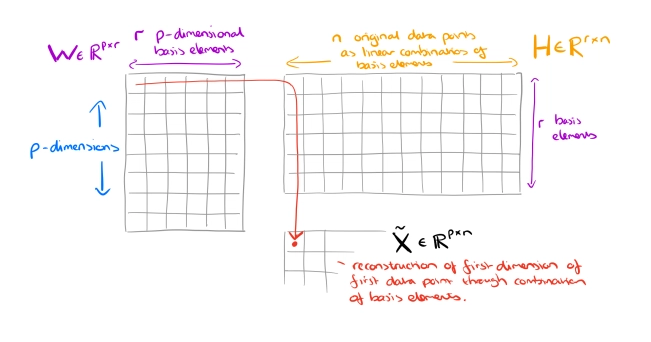 W ∈ ℝᵖˣʳ
r p-dimensional
basis elements
n original data points
as linear combinations of
basis elements
H ∈ ℝʳˣⁿ
p-dimensions
r basis
elements
X̃ ∈ ℝᵖˣⁿ
- reconstruction of first dimension of
first data point through combination
of basis elements.